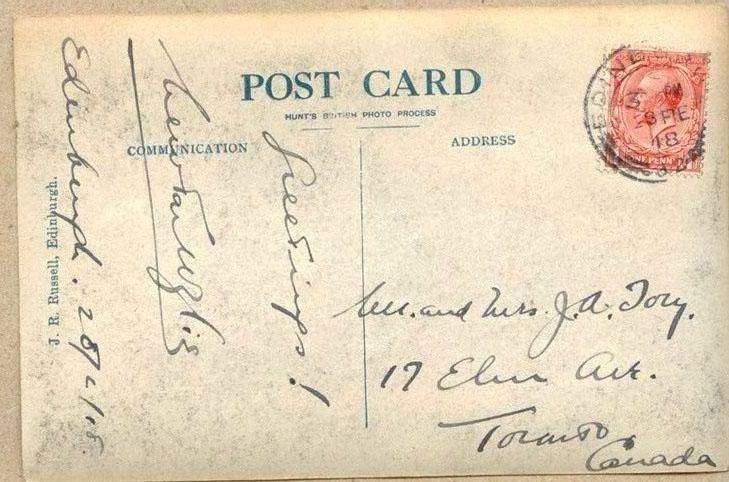 POST CARD
HUNT'S BRITISH PHOTO PROCESS
COMMUNICATION
ADDRESS
J. R. Russell, Edinburgh.
Edinburgh. 28/2/18.
Greetings!
Mr. and Mrs. J. A. Tory.
17 Elm Ave.
Toronto,
Canada
EDINBURGH
PM
FE
18
ONE PENNY